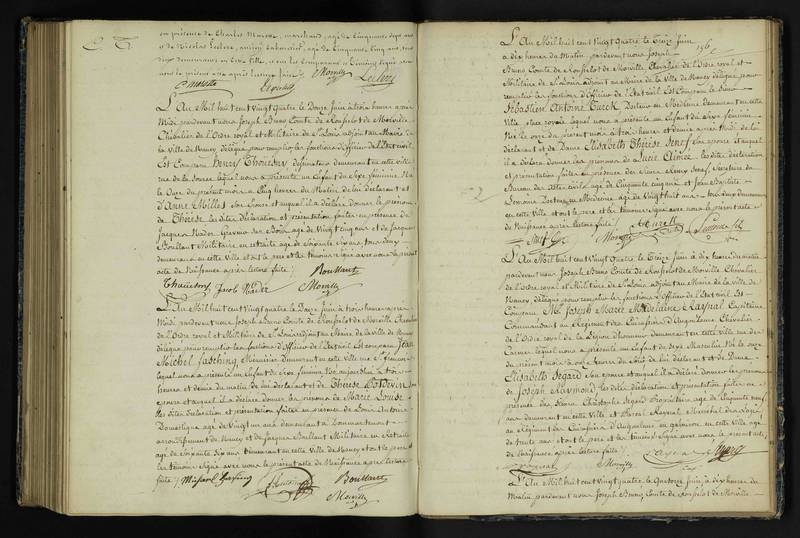 en présence de Charles Marose, marchand, agé de Cinquante Sept ans
et de Nicolas Leclerc, ancien agé de Cinquante Cinq ans, tous
deux demeurans en cette Ville, et ont les Comparans et témoins signé avec
nous le présent acte après lecture faite
Morville Leclerc
L'An Mil huit cent Vingt quatre le Douze Juin à trois heures après
Midi pardevant nous Joseph Bruno Comte de Rouxelot de Morville
Chevalier de l'Ordre royal et Militaire de St Louis adjoint au Maire de
la Ville de Nancy délégué pour remplir les fonctions d'Officier de l'Etat civil
Est Comparu Henry Thouesny demeurant en cette ville
rue de la lequel nous a présenté un Enfant du Sexe féminin Né
le Onze du présent mois à Cinq heures du Matin, de lui déclarant et
d'Anne Milles Son Epouse et auquel il a déclaré donner le prénom
de Thérèse les dites déclaration et présentation faites en présence de
Jacques Nader Graveur sur Bois agé de Vingt cinq ans et de Jacques
Boullant Militaire en retraite agé de Soixante Six ans, tous deux
demeurans en cette Ville et ont le père et les témoins signé avec nous le présent
acte de Naissance après lecture faite
Jacob Nader Morville Boullant
L'An Mil huit cent Vingt quatre le Douze Juin à trois heures après
Midi pardevant nous Joseph Bruno Comte de Rouxelot de Morville Chevalier
de l'Ordre royal et Militaire de St Louis adjoint au Maire de la Ville de Nancy
délégué pour remplir les fonctions d'Officier de l'Etat civil Est comparu Jean
Michel Jasching Menuisier Demeurant en cette Ville rue St François
lequel nous a présenté un Enfant du Sexe féminin Né aujourd'hui à trois
heures et demie du matin de lui déclarant et de Thérèse Potdevin Son
épouse et auquel il a déclaré donner les prénoms de Marie Louise
Les dites déclaration et présentation faites en présence de Louis Antoine
agé de Vingt un ans demeurant à Dommartemont
arrondissement de Nancy et de Jacques Boullant Militaire en Retraite
agé de Soixante Six ans demeurant en cette Ville de Nancy et ont le père et
les témoins Signé avec nous le présent acte de Naissance après lecture
faite Boullant
Morville
L'An Mil huit cent Vingt quatre le Treize Juin
à dix heures du Matin, pardevant nous Joseph
196
Bruno Comte de Rouxelot de Morville Chevalier de l'Ordre royal et
Militaire de St Louis adjoint au Maire de la Ville de Nancy délégué pour
remplir les fonctions d'Officier de l'Etat civil Est Comparu le Sieur
Sébastien Antoine Turck Docteur en Médecine demeurant en cette
Ville place royale lequel nous a présenté un Enfant du Sexe féminin
Né le onze du présent mois à trois heures et demie après Midi de lui
déclarant et de Dame Elisabeth Thérèse Senef Son épouse et auquel
il a déclaré donner les prénoms de Lucie Aimée les dites déclaration
et présentation faites en présence des Sieurs Senef, Secrétaire du
Bureau des agé de Cinquante cinq ans et Jean Baptiste
Simonin Docteur en Médecine agé de Vingt huit ans tous deux demeurans
en cette ville et ont le père et les témoins signé avec nous le présent acte
de Naissance après lecture faite
Senef Morville Simonin fils
L'An Mil huit cent Vingt quatre le Treize Juin à dix heures du matin
pardevant nous Joseph Bruno Comte de Rouxelot de Morville Chevalier
de l'Ordre royal et Militaire de St Louis, adjoint au Maire de la Ville de
Nancy délégué pour remplir les fonctions d'Officier de l'Etat civil Est
Comparu Mr Joseph Marie Madelaine Raynal Capitaine
Commandant au Régiment des Cuirassiers d'Angoulême Chevalier
de l'Ordre royal de la Légion d'honneur demeurant en cette Ville rue des
Carmes lequel nous a présenté un Enfant du Sexe Masculin Né le onze
du présent mois à onze heures du Soir de lui déclarant et de Dame
Elisabeth Segard Son épouse et auquel il a déclaré donner les prénoms
de Joseph Raymond, les dites déclaration et présentation faites en
présence des Sieurs Christophe Segard Propriétaire agé de Cinquante neuf
ans demeurant en cette Ville et Pascal Raynal Maréchal des Logis
au Régiment des Cuirassiers d'Angoulême en garnison en cette Ville agé
de trente ans et ont le père et les témoins Signé avec nous le présent acte
de Naissance après lecture faite
Raynal Morville Raynal Segard
L'An Mil huit cent Vingt quatre le Quatorze Juin à dix heures du
Matin pardevant nous Joseph Bruno Comte de Rouxelot de Morville